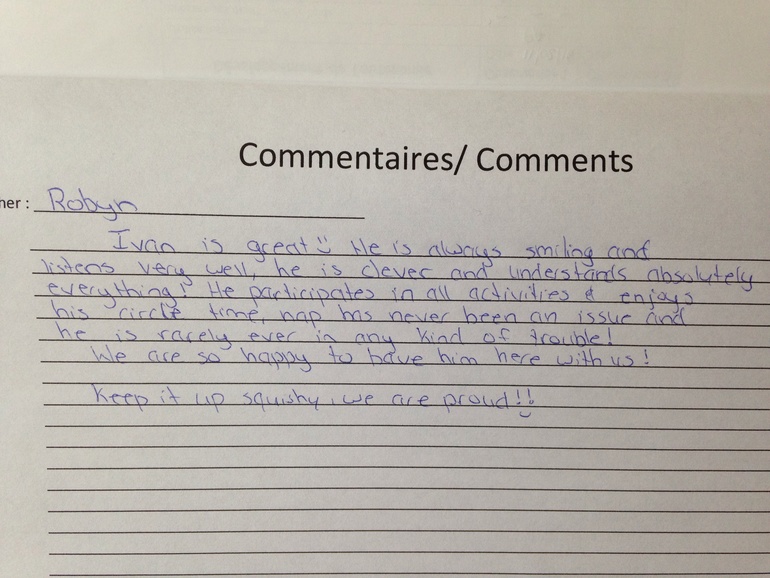 Commentaires/ Comments
her : Robyn
Ivan is great! He is always smiling and
listens very well, he is clever and understands absolutely
everything! He participates in all activities & enjoys
his circle time, nap has never been an issue and
he is rarely ever in any kind of trouble!
We are so happy to have him here with us!
Keep it up squishy, we are proud!!